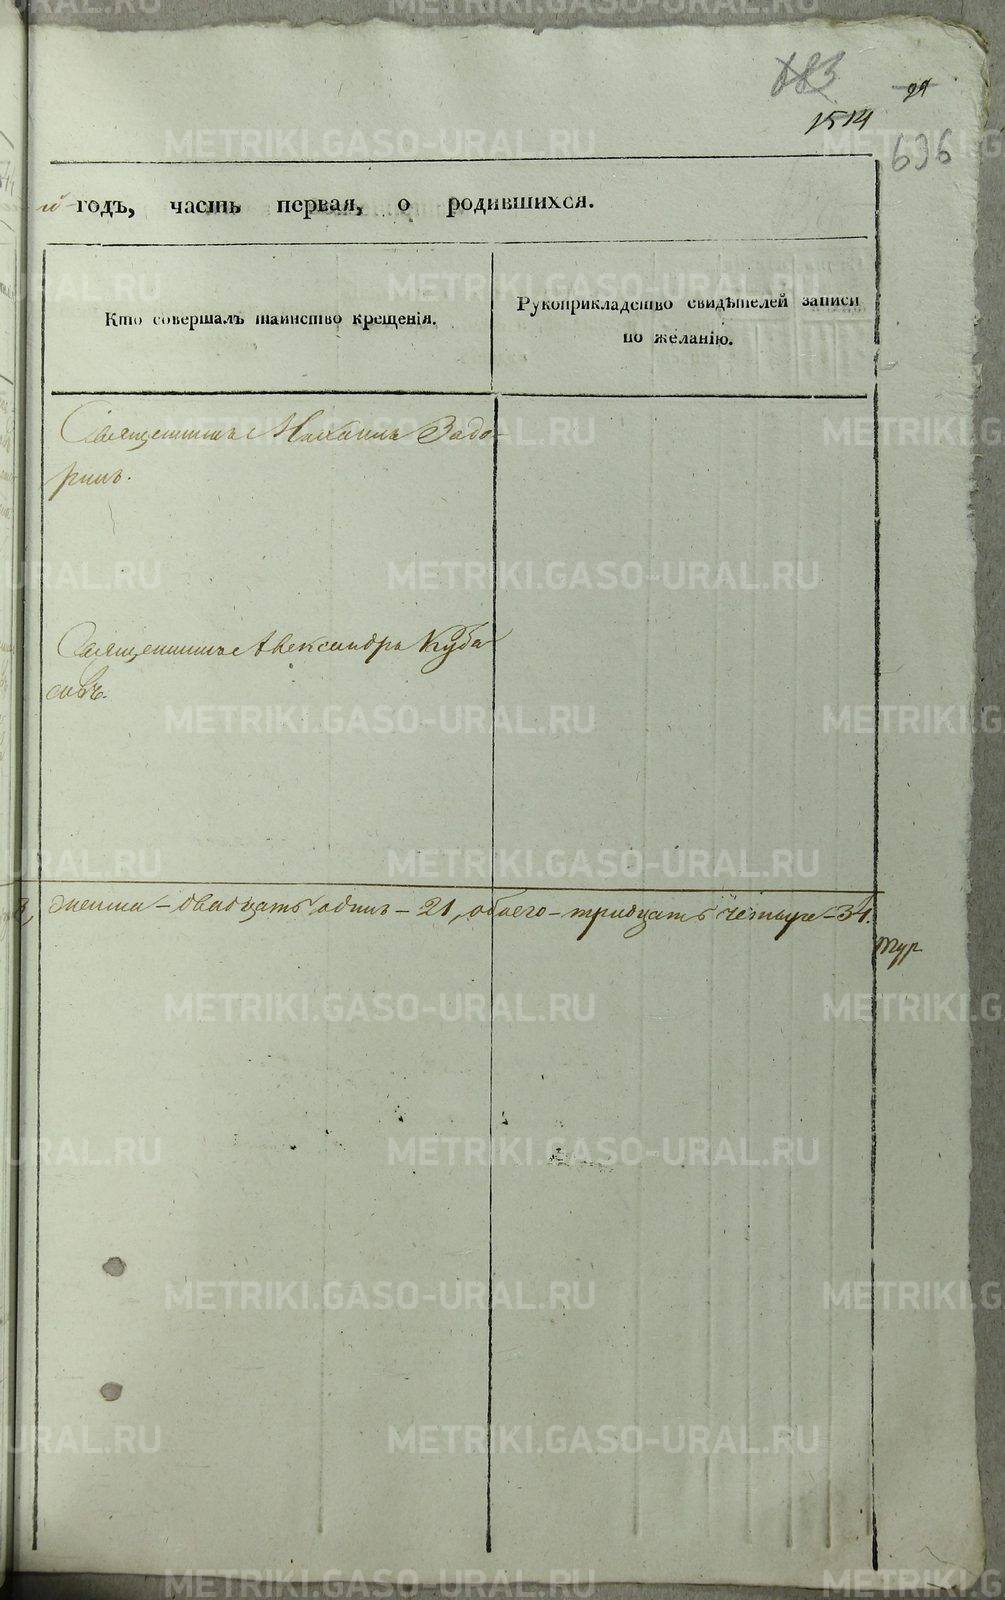 683
99
1514
636
й годъ, часть первая, о родившихся.
Кто совершалъ таинство крещенія.
Рукоприкладство свидѣтелей записи
по желанію.
Священникъ Михаилъ Задо-
ринъ.
Священникъ Александръ Куба
совъ.
женска – двадцать одинъ – 21, обоего – тридцать четыре – 34.
METRIKI.GASO-URAL.RU